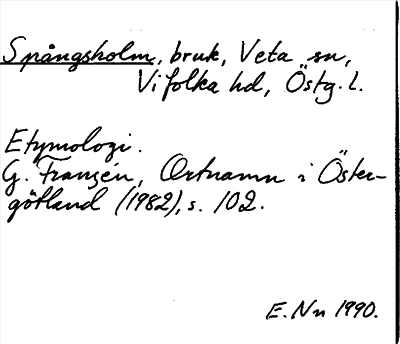 Spångsholm, bruk, Veta sn,
Vifolka hd, Östg. l.
Etymologi.
G. Franzén, Ortnamn i Öster-
götland (1982), s. 102.
E. Nn 1990.